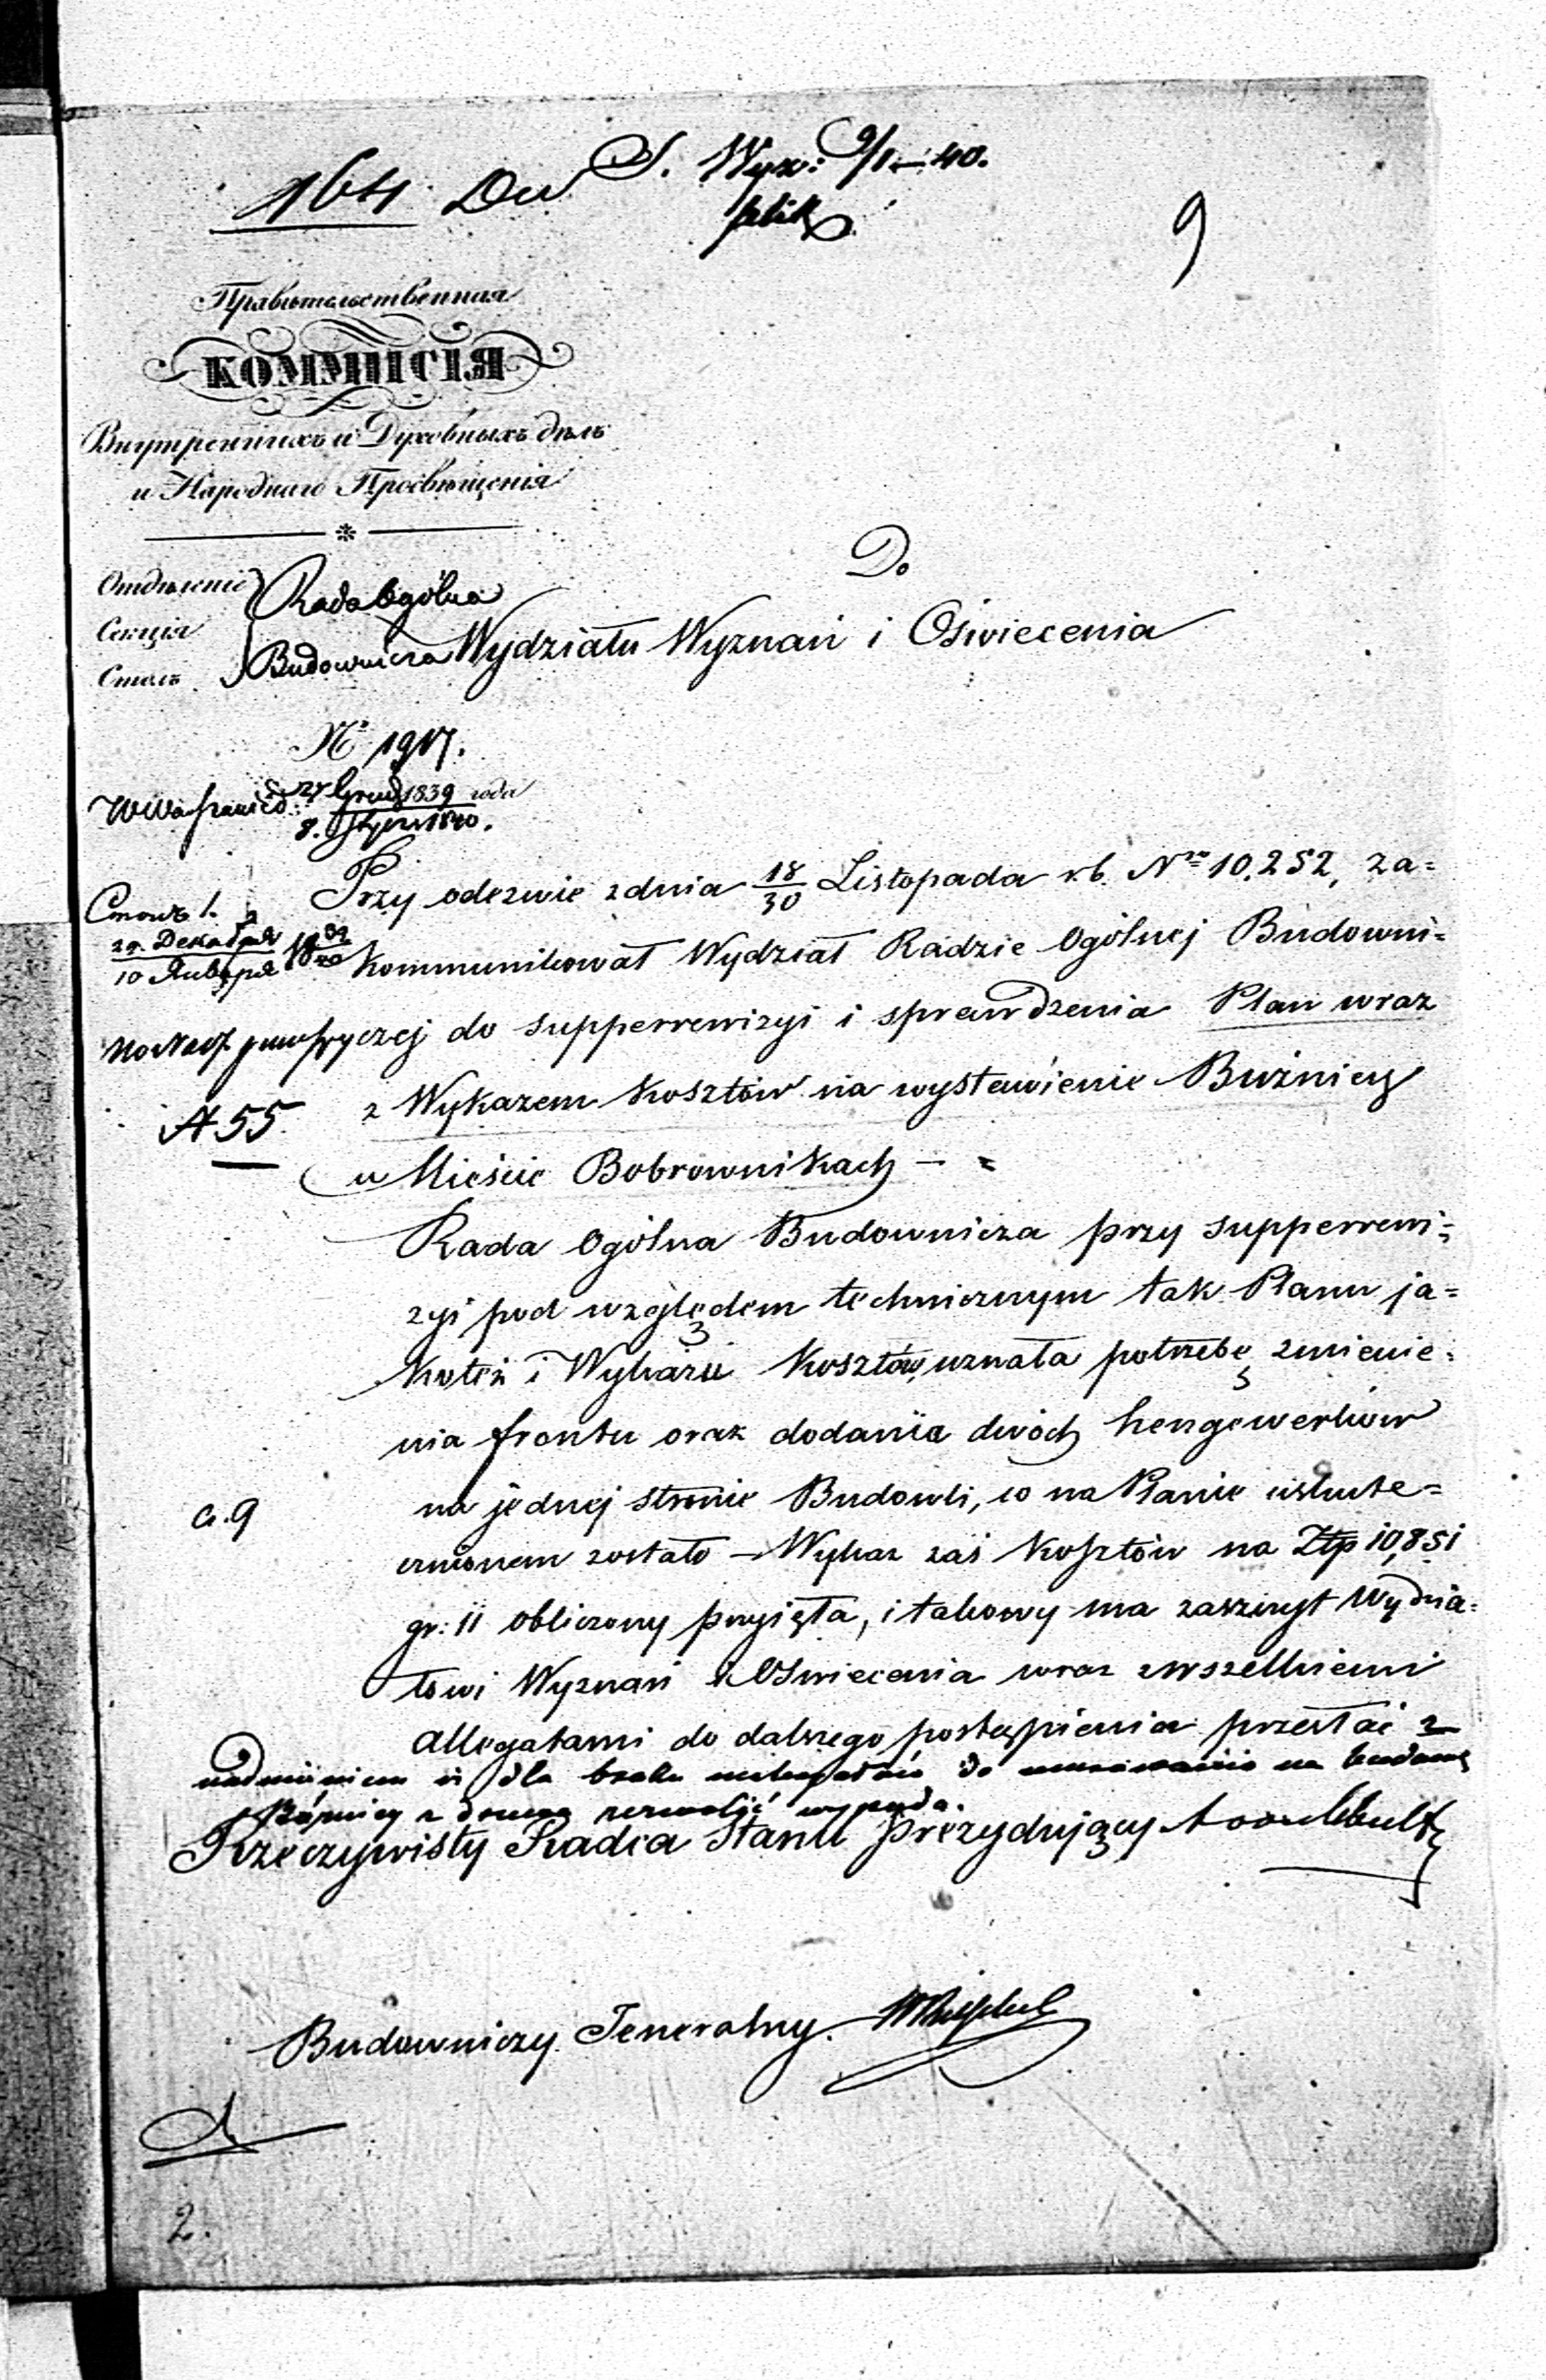 164. S. Wyz: 9/1.–40.
9
Правительственная
КОММИСІЯ
Внутреннихъ и Духовныхъ дѣлъ
и Народнаго Просвѣщенія
Отдѣленіе
Секція
Столъ
Rada Ogólna
Budownicza
Do
Wydziału Wyznań i Oświecenia
№ 1917.
W Warszawie d. 27 Grud 1839 года
8. Stycz 1840.
Przy odezwie z dnia 18/30 Listopada r.b. Nro 10,252, za=
29. Декабря 1839
10 Января 40
kommunikował Wydział Radzie Ogólnej Budowni=
czej do supperrewizyi i sprawdzenia Plan wraz
A 55.
z Wykazem kosztów na wystawienie Bużnicy
w Mieście Bobrownikach – =
Rada Ogólna Budownicza przy supperrewi=
zyi pod względem technicznym tak Planu ja=
koteż i Wykazu kosztów, uznała potrzebę zmienie=
nia frontu oraz dodania dwóch hengewerków
a. 9
na jednej stronie Budowli, co na Planie uskute=
cznionem zostało – Wykaz zaś kosztów na Ztp 10,851
gr: 11 obliczony przyięła, i takowy ma zaszczyt Wydzia=
łowi Wyznań i Oświecenia wraz z wszelkiemi
allegatami do dalszego postąpienia przesłać z
nadmienieniem iż dla braku do murowania na budowę
Bóżnicy z drzewa zezwolić wypada.
Rzeczywisty Radca Stanu Prezydujący
Budowniczy Jeneralny.
2.